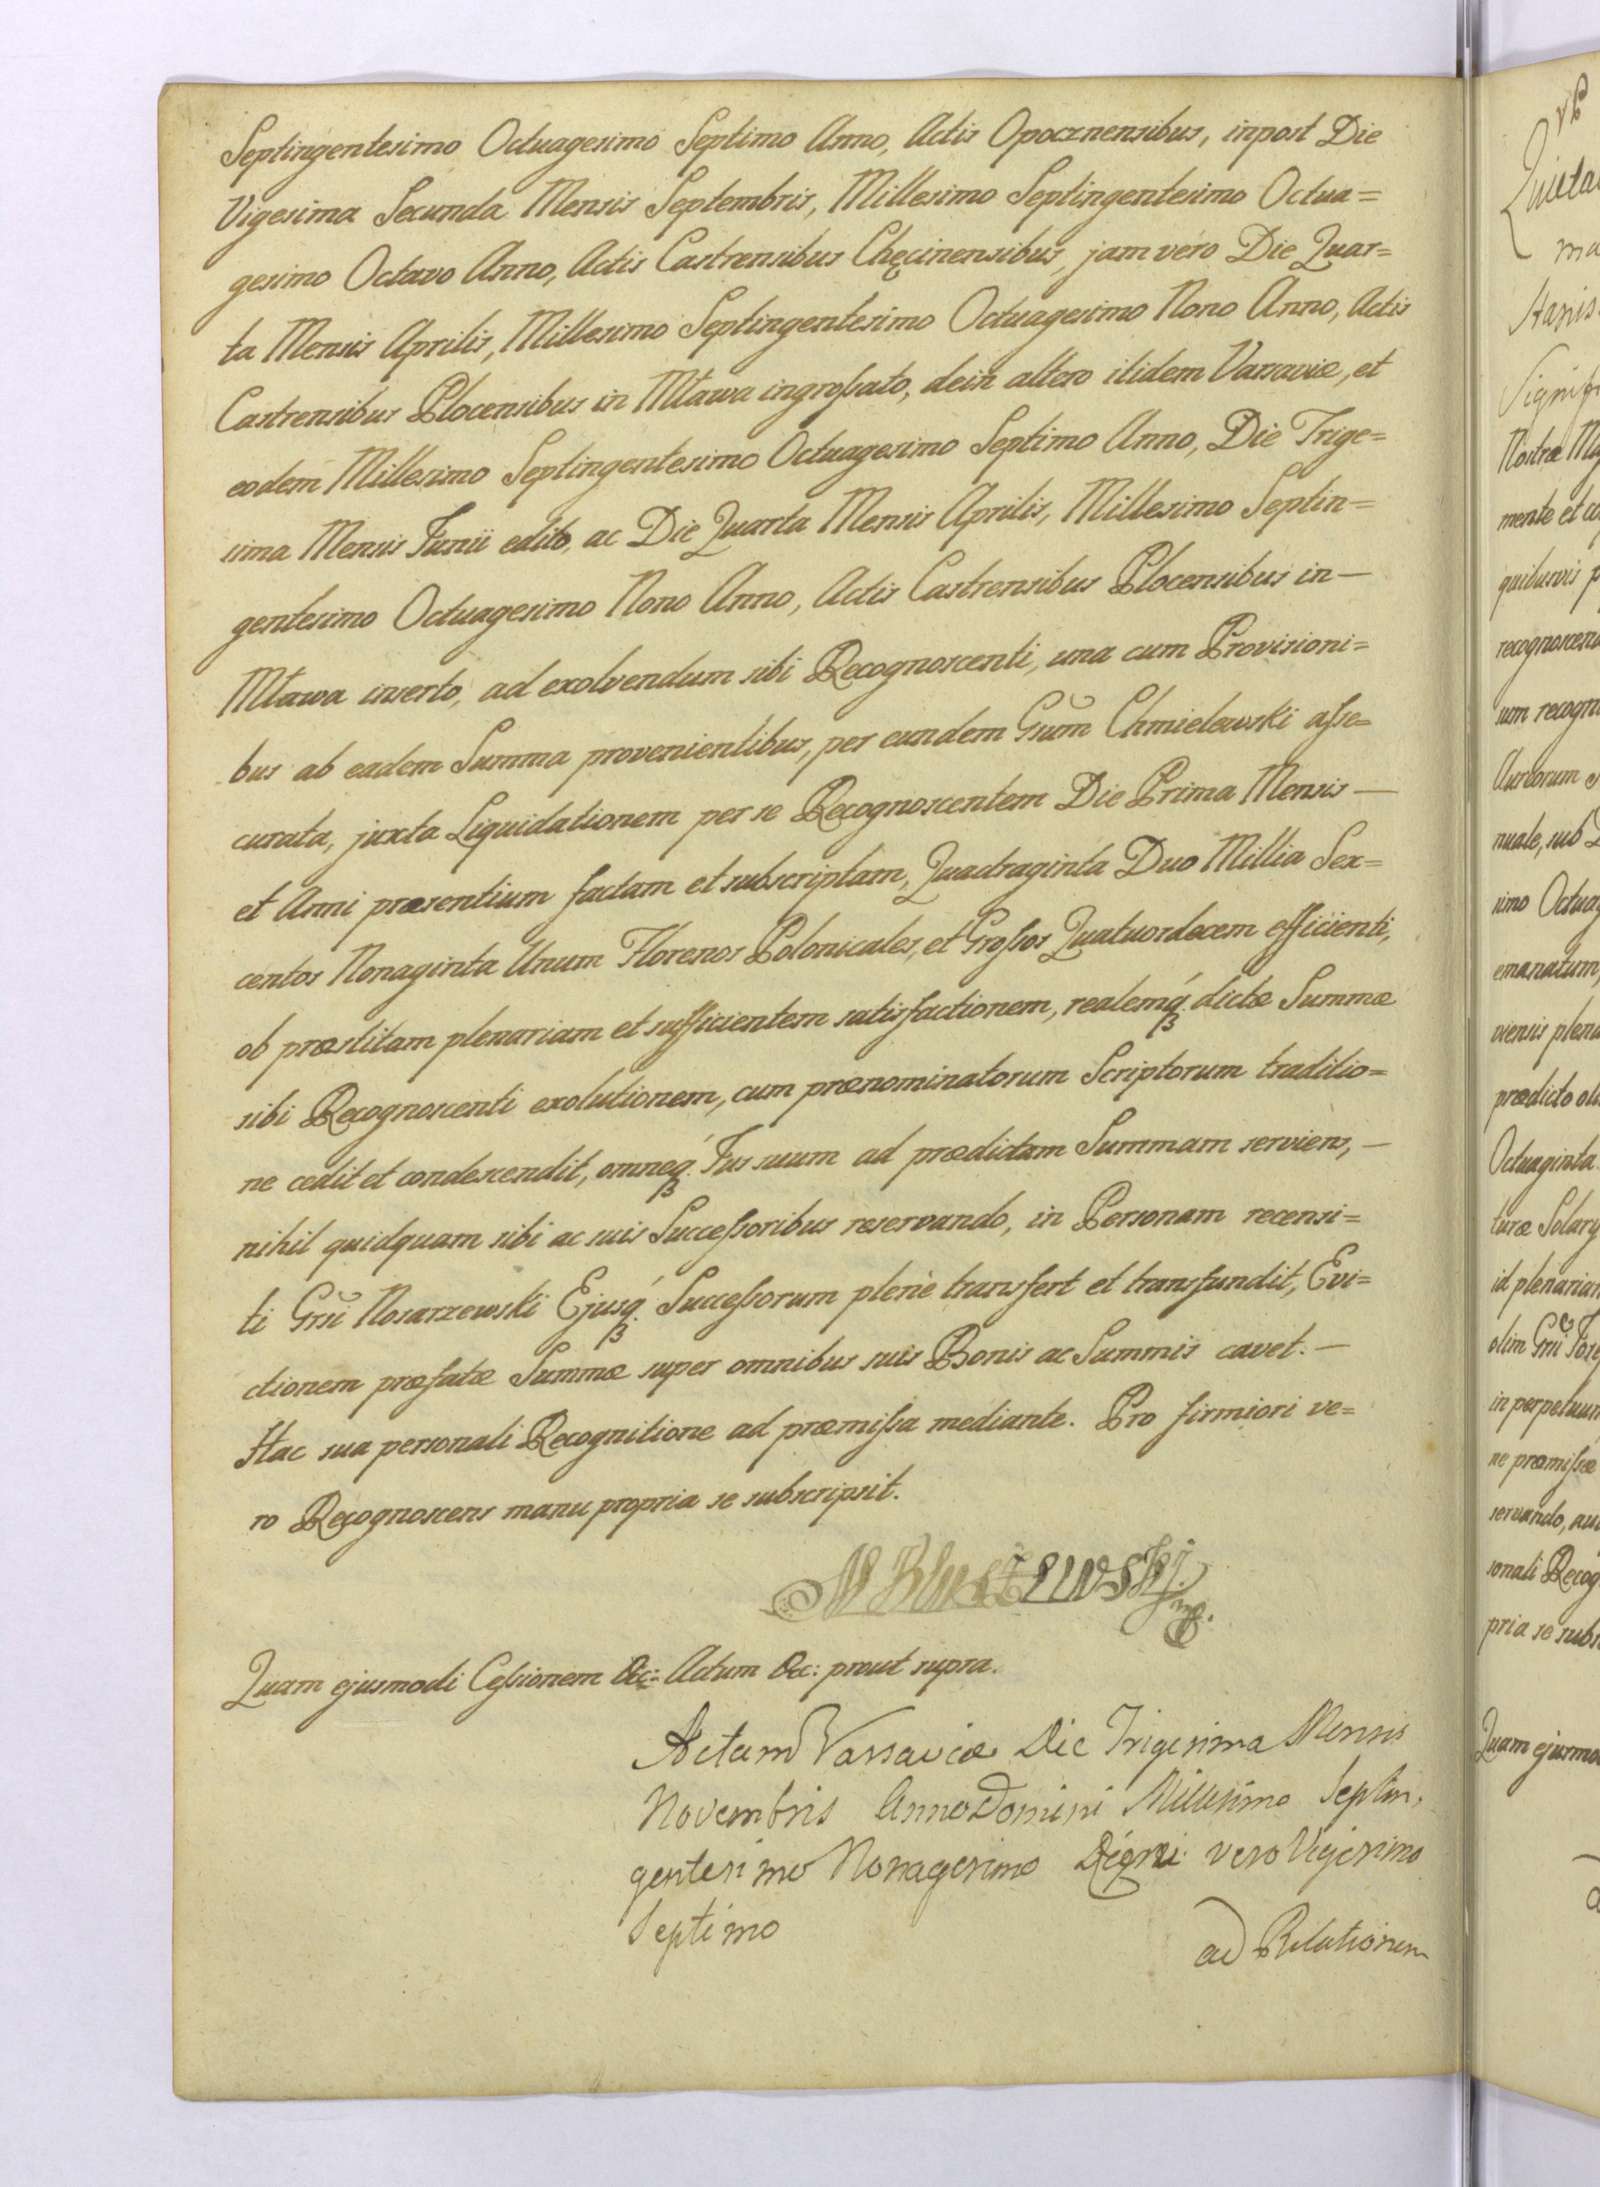 Septingentesimo Octuagesimo Septimo Anno, Actis Opocznensibus, inpost Die
Vigesima Secunda Mensis Septembris, Millesimo Septingentesimo Octua=
gesimo Octavo Anno, Actis Castrensibus Chęcinensibus, jam vero Die Quar=
ta Mensis Aprilis, Millesimo Septingentesimo Octuagesimo Nono Anno, Actis
Castrensibus Plocensibus in Mława ingrossato, dein altero itidem Varsaviæ, et
eodem Millesimo Septingentesimo Octuagesimo Septimo Anno, Die Trige=
sima Mensis Junii edito, ac Die Quarta Mensis Aprilis, Millesimo Septin=
gentesimo Octuagesimo Nono Anno, Actis Castrensibus Plocensibus in—
Mława inserto, ad exolvendum sibi Recognoscenti, una cum Provisioni=
bus ab eadem Summa provenientibus, per eundem Grum Chmielewski asse=
curata, juxta Liquidationem per se Recognoscentem Die Prima Mensis—
et Anni præsentium factam et subscriptam, Quadraginta Duo Millia Sex=
centos Nonaginta Unum Florenos Polonicales, et Grossos Quatuordecem efficienti,
ob præstitam plenariam et sufficientem satisfactionem, realemq́ꝫ dictæ Summæ
sibi Recognoscenti exolutionem, cum prænominatorum Scriptorum traditio=
ne cedit et condescendit, omneq́ꝫ Jus suum ad prædictam Summam serviens,—
nihil quidquam sibi ac suis Successoribus reservando, in Personam recensi=
ti Grsi Nosarzewski Ejusq́ꝫ Successorum plenè transfert et transfundit, Evi=
ctionem præfatæ Summæ super omnibus suis Bonis ac Summis cavet.—
Hac sua personali Recognitione ad præmissa mediante. Pro firmiori ve=
ro Recognoscens manu propria se subscripsit.
Quam ejusmodi Cessionem &c: Actum &c: prout supra.
Actum Varsaviæ Die Trigesima Mensis
Novembris Anno Domini Millesimo Septin,
gentesimo Nonagesimo Regni vero Vigesimo
Septimo
ad Relationem
Quieta
ma
Stanis
Signifi
Nostræ Maj
mente et co
quibusvis p
recognoscen
sum recogn
Aureorum
nuale, sub
simo Octuag
emanatum,
viensis plena
prædicto oli
Octuaginta
turæ Solary
id plenariam
olim Grsi Jose
in perpetuum
ne præmissæ
servando, au
sonali Recog
pria se subs
Quam ejusmo